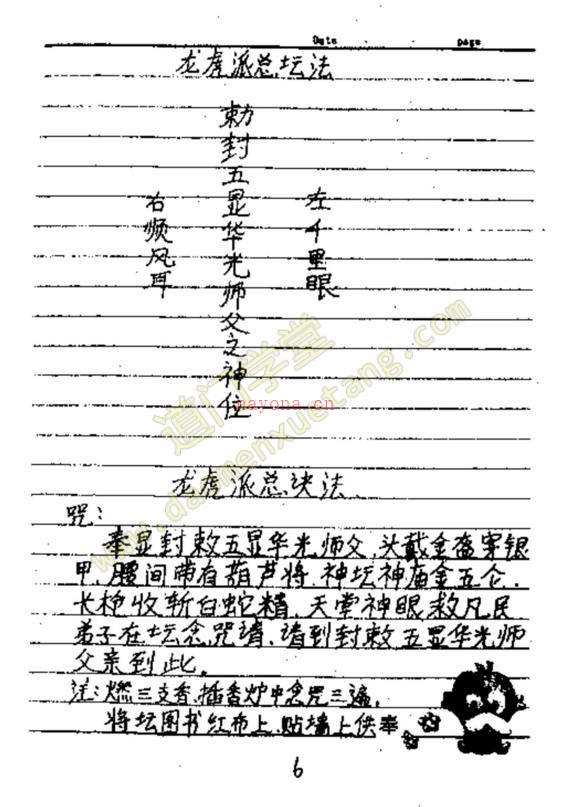 Date page
龙虎派总坛法
左千里眼
勅封五显华光师父之神位
右顺风耳
道门学堂
www.daomenxuetang.com
nayona.cn
龙虎派总诀法
咒:
奉显封敕五显华光师父,头戴金盔穿银
甲,腰间带有葫芦将,神坛神庙金五仑,
长枪收斩白蛇精,天堂神眼救凡民
弟子在坛念咒请,请到封敕五显华光师
父亲到此。
注:燃三支香,插香炉中念咒三遍,
将坛图书红布上,贴墙上供奉
6